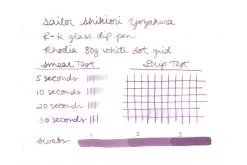 Sailor Shikiori Yozakura
glass dip pen
Rhodia 80g white dot grid
Smear Test Drip Test
5 seconds
10 seconds
20 seconds
30 seconds
1 2 3
Swabs